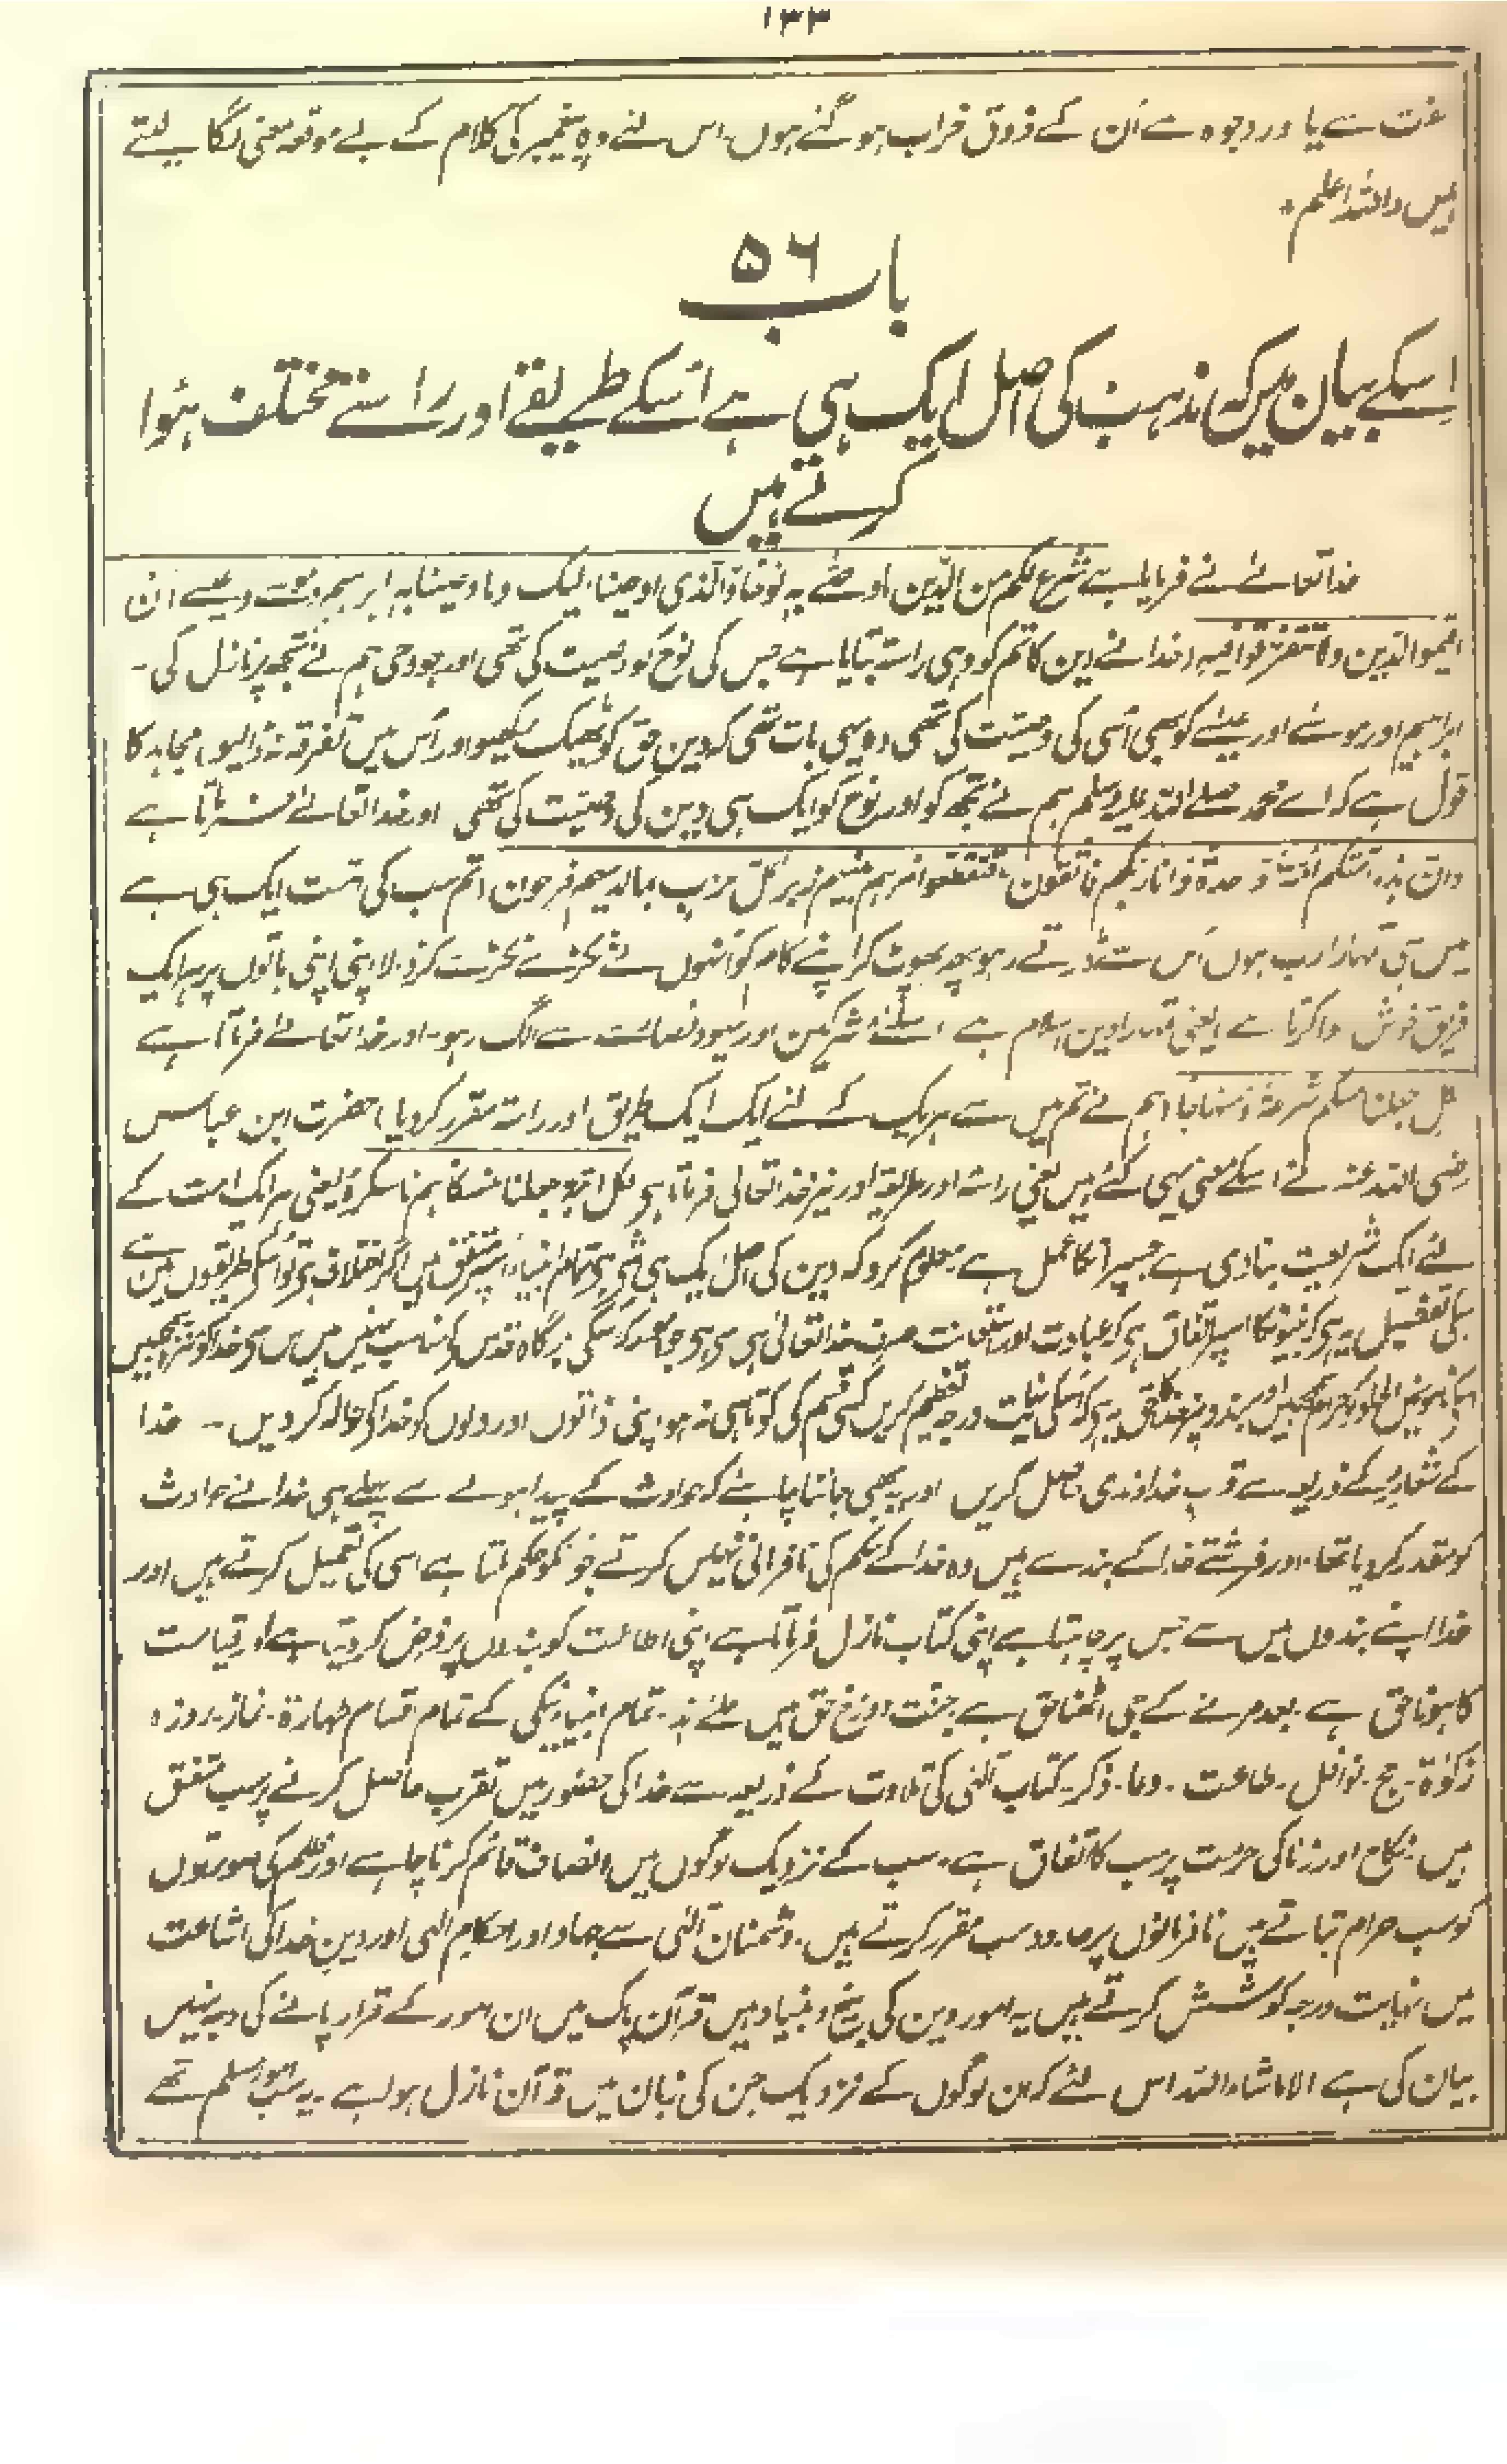 ۱۳۳
سے یا اور وجوہ سے اُن کے ذوق خراب ہو گئے ہوں اس لئے وہ پیغمبر کی کلام کے بے موقعہ معنی لگا لیتے
ہیں واللہ اعلم۔
باب ۵۶
اسکے بیان میں کہ مذہب کی اصل ایک ہی ہے اُسکے طریقے اور راستے مختلف ہؤا
کرتے ہیں
خدا تعالےٰ نے فرمایا ہے شرع لکم من الدین ما وصے بہ نوحا والذی اوحینا الیک وما وصینا بہ ابرہیم وموسے وعیسے ان
اقیموا الدین ولا تتفرقوا فیہ (خدا نے دین کا تم کو وہی راستہ بتایا ہے جس کی نوح کو وصیت کی تھی اور جو وحی ہم نے تجھ پر نازل کی۔
ابراہیم اور موسےٰ اور عیسےٰ کو بھی اُسی کی وصیت کی تھی وہ یہی بات تھی کہ دین حق کو ٹھیک رکھیو اور اُس میں تفرقہ نہ ڈالیو) مجاہد کا
قول ہے کہ اے محمد صلے اللہ علیہ وسلم ہم نے تجھ کو اور نوح کو ایک ہی دین کی وصیت کی تھی اور خدا تعالےٰ فرماتا ہے
وان ہذہ امتکم امۃ واحدۃ وانا ربکم فاتقون فتقطعوا امرہم بینہم زبرا کل حزب بما لدیہم فرحون (تم سب کی امت ایک ہی ہے
میں ہی تمہارا رب ہوں اُس سے ڈرتے رہو پھر پھوٹ کر اپنے کام کو انہوں نے ٹکڑے ٹکڑے کر ڈالا اپنی اپنی باتوں پر ہر ایک
فریق خوش ہوا کرتا ہے) یعنی تمہارا دین اسلام ہے اسلئے مشرکین اور یہود ونصارےٰ سے الگ رہو۔ اور خدا تعالےٰ فرماتا ہے
لکل جعلنا منکم شرعۃ ومنہاجا (ہم نے تم میں سے ہر یک کے لئے ایک ایک طریق اور راستہ مقرر کر دیا) حضرت ابن عباس
رضی اللہ عنہ نے اسکے معنی یہی کئے ہیں یعنی راستہ اور طریقہ اور نیز خدا تعالی فرماتا ہی لکل امۃ جعلنا منسکا ہم ناسکوہ یعنی ہر ایک امت کے
لئے ایک شریعت بنا دی ہے جسپر اُنکا عمل ہے۔ معلوم کرو کہ دین کی اصل ایک ہی شئی ہی تمام انبیاء اسپر متفق ہیں اگر اختلاف ہی تو اُسکی طریقوں میں ہے
اسکی تفصیل یہ ہی کہ نبیونکا اسپر اتفاق ہی کہ عبادت اور استعانت صرف خدا تعالیٰ ہی سی ہی جو امور کہ اُسکی بارگاہ قدس کی مناسب نہیں ہیں اُن سی خدا کو منزہ سمجھیں
تعظیم کریں کسی قسم کی کوتاہی نہ ہو اپنی ذاتوں اور دلوں کو خدا کی حوالہ کر دیں۔ خدا
کے شعائر کے ذریعہ سے قرب خداوندی حاصل کریں اور یہ بھی جاننا چاہئے کہ حوادث کے پیدا ہونے سے پہلے ہی خدا نے حوادث
کو مقدر کر دیا تھا۔ اور فرشتے خدا کے بندے ہیں وہ خدا کے حکم کی نافرمانی نہیں کرتے جو انکو حکم ملتا ہے اسی کی تعمیل کرتے ہیں اور
خدا اپنے بندوں میں سے جس پر چاہتا ہے اپنی کتاب نازل فرماتا ہے اپنی اطاعت کو بندوں پر فرض کر دیتا ہے اور قیامت
کا ہونا حق ہے۔ بعد مرنے کے جی اٹھنا حق ہے۔ جنت دوزخ حق ہیں علےٰ ہذا۔ تمام انبیا نیکی کے تمام اقسام طہارۃ۔ نماز۔ روزہ
زکوٰۃ۔ حج۔ نوافل۔ طاعت۔ دعا۔ ذکر۔ کتاب آلٰہی کی تلاوت کے ذریعہ سے خدا کی حضور میں تقرب حاصل کرنے پر سب متفق
ہیں۔ نکاح اور زنا کی حرمت پر سب کا اتفاق ہے۔ سب کے نزدیک لوگوں میں انصاف قائم کرنا چاہے اور ظلم کی صورتوں
کو سب حرام بتاتے ہیں نافرمانوں پر حدود سب مقرر کرتے ہیں۔ دشمنان آلٰہی سے جہاد اور احکام الٰہی اور دین خدا کی اشاعت
میں نہایت درجہ کوشش کرتے ہیں یہ امور دین کی بیخ وبنیاد ہیں قرآن پاک میں ان امور کے قرار پانے کی وجہ نہیں
بیان کی ہے الا ماشاء اللہ اس لئے کہ ان لوگوں کے نزدیک جن کی زبان میں قرآن نازل ہوا ہے۔ یہ سب امور مسلم تھے